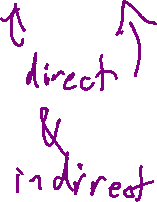 direct
&
indirect